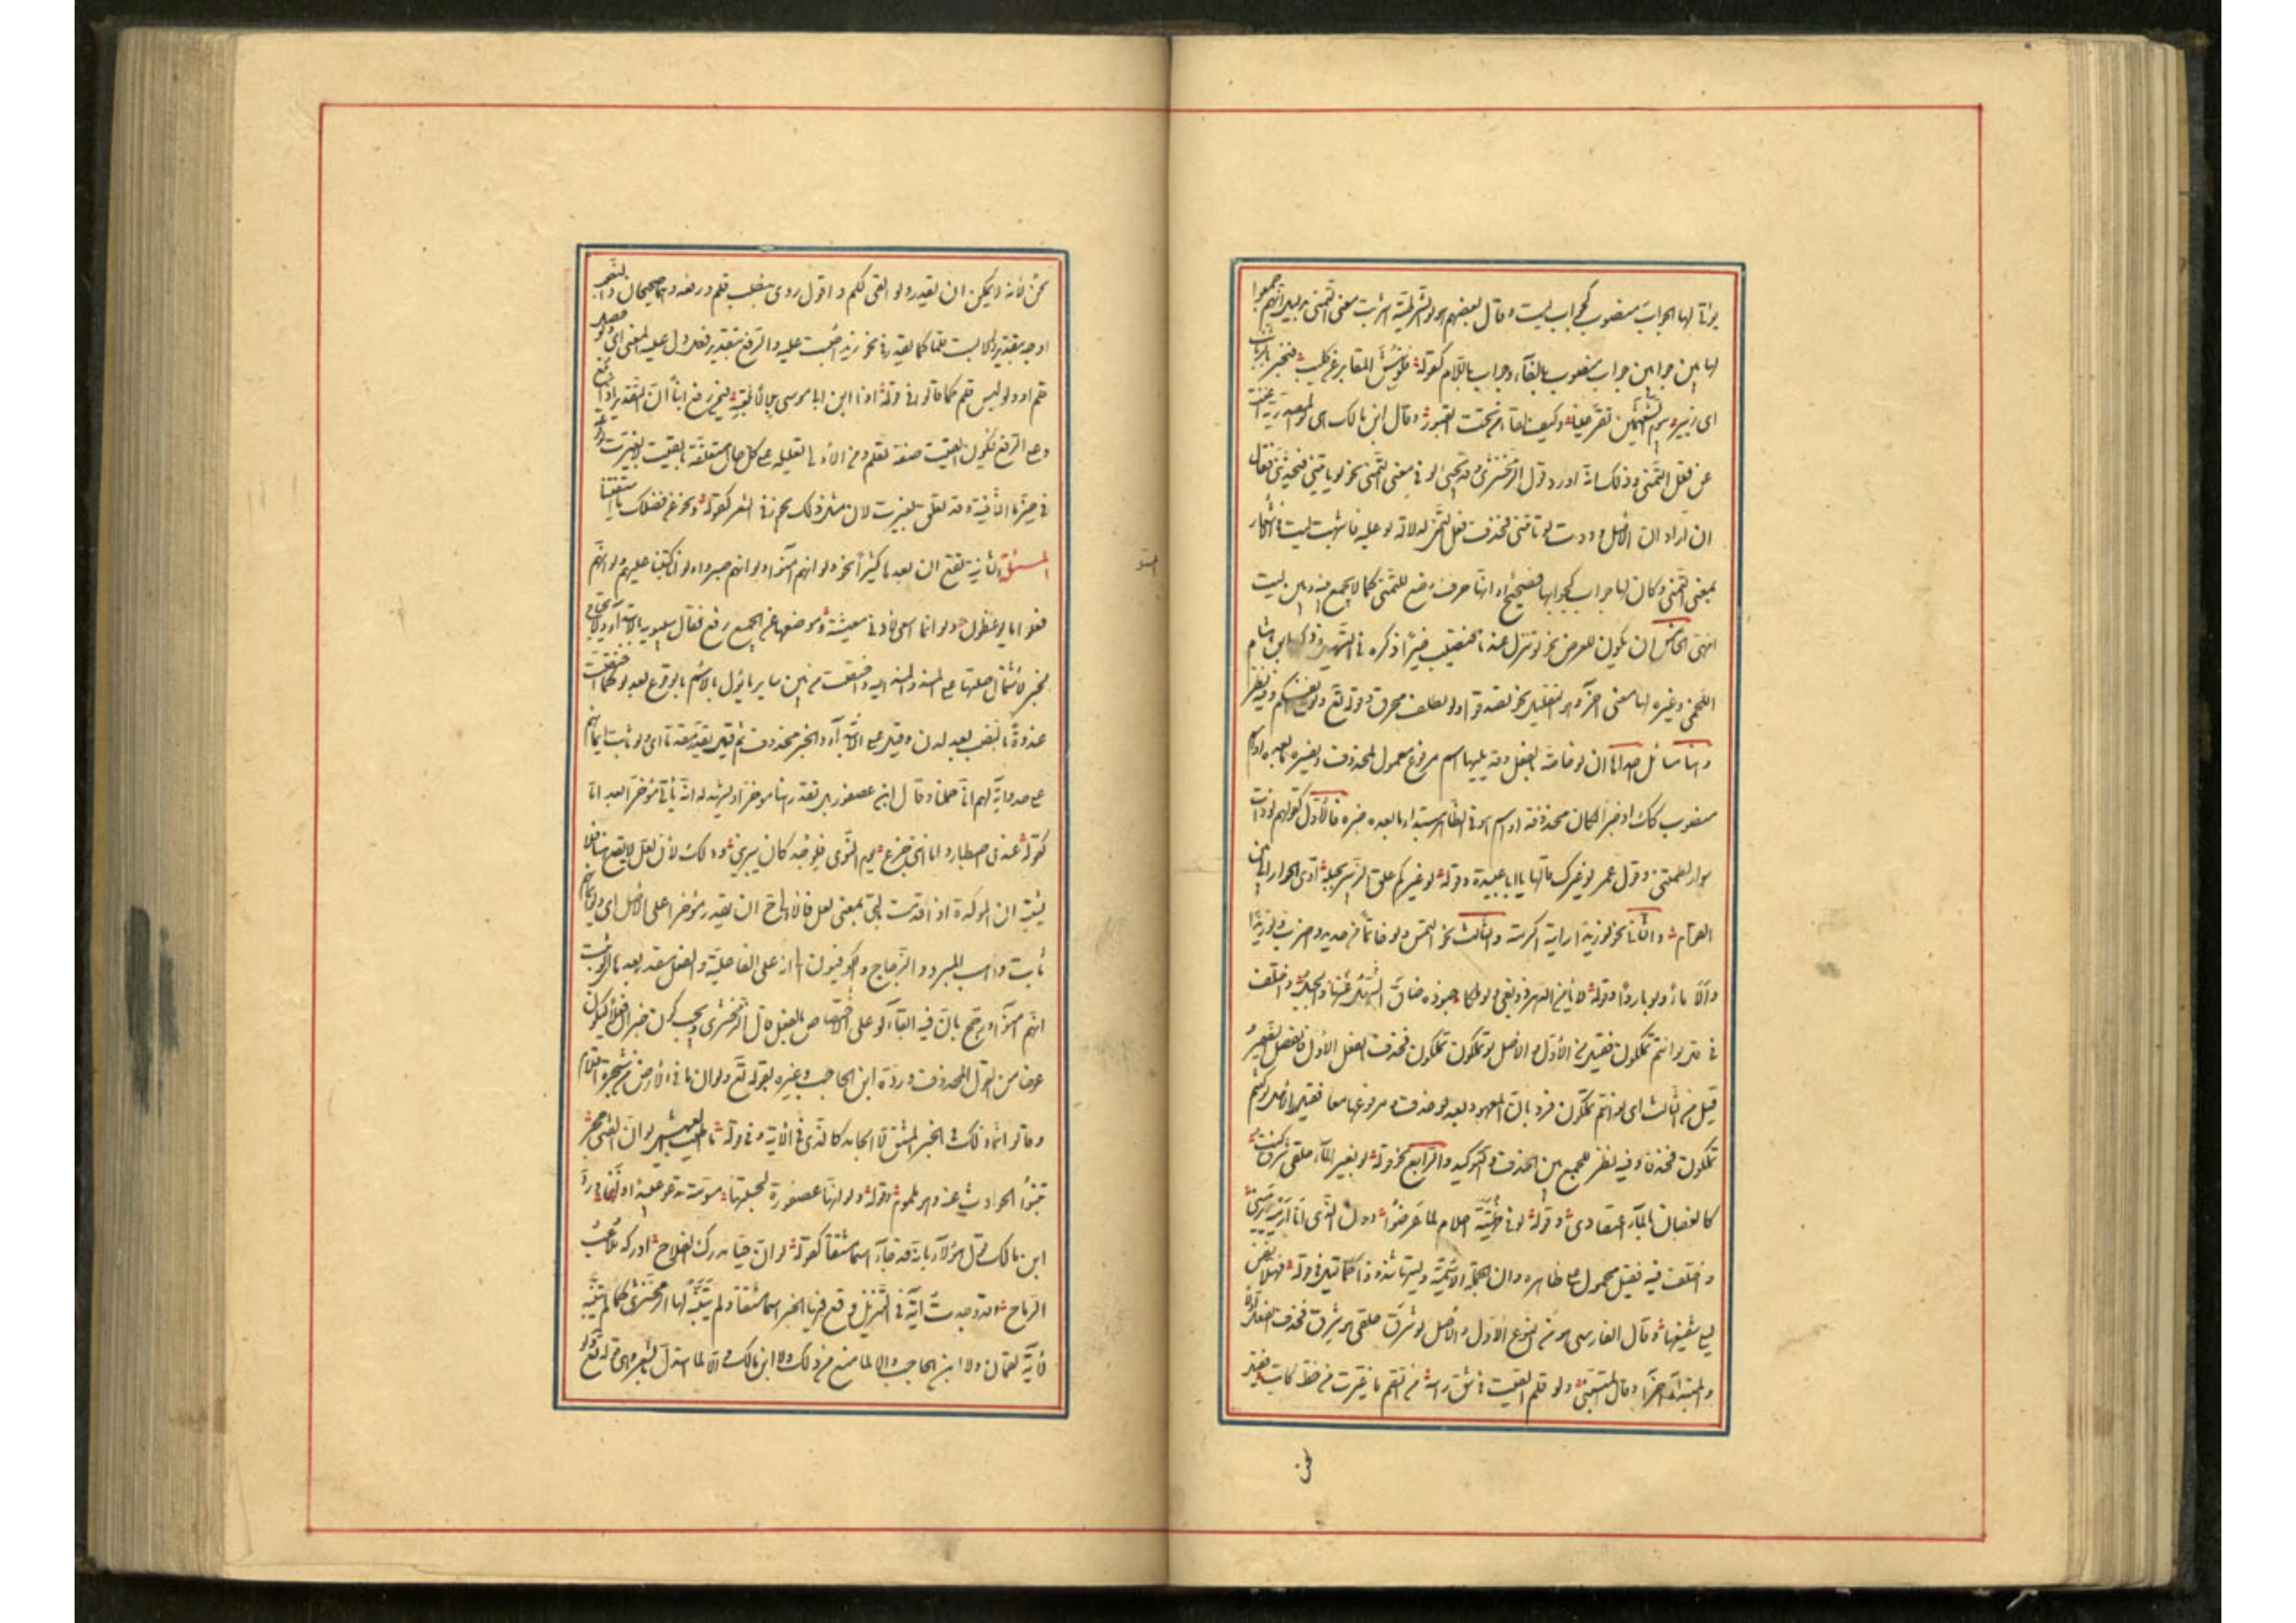 يؤتى لها بجواب منصوب كجواب ليت وقال بعضهم هى لو الشرطية اشربت معنى التمنى بدليل انهم جمعوا
لها بين جوابين جواب منصوب بالفاء وجواب باللام كقوله فلو نبش المقابر عن كليب فيخبر بالذنائب
اى زير بيوم الشعثمين لقر عينا وكيف لقاء من تحت القبور وقال ابن مالك هى لو المصدرية اغنت
عن فعل التمنى وذلك انه اورد قول الزمخشرى وقد تجىء لو فى معنى التمنى نحو لو تاتينى فتحدثنى فقال
ان اراد ان الاصل وددت لو تاتينى فحذف فعل التمنى لدلالة لو عليه فاشبهت ليت فى الاشعار
بمعنى التمنى وكان لها جواب كجوابها فصحيح او انها حرف وضع للتمنى كليت فممنوع
انتهى الخامس ان تكون للعرض نحو لو تنزل عندنا فتصيب خيرا ذكره فى التسهيل وذكر ابن هشام
اللخمى وغيره لها معنى اخر وهو التقليل نحو تصدقوا ولو بظلف محرق وقوله تع ولو على انفسكم وفيه نظر
وهنا مسائل احداها ان لو خاصة بالفعل وقد يليها اسم مرفوع معمول لمحذوف يفسره ما بعده او اسم
منصوب كذلك او خبر لكان محذوفة او اسم هو فى الظاهر مبتدا وما بعده خبره فالاول كقولهم لو ذات
سوار لطمتنى وقول عمر لو غيرك قالها يا ابا عبيدة وقوله لو غيركم علق الزبير بحبله ادى الجوار الى بنى
العوام والثانى نحو لو زيدا رايته اكرمته والثالث نحو التمس ولو خاتما من حديد واضرب ولو زيدا
والا ماء ولو باردا وقوله لا يامن الدهر ذو بغى ولو ملكا جنوده ضاق عنها السهل والجبل واختلف
فى قل لو انتم تملكون فقيل من الاول والاصل لو تملكون تملكون فحذف الفعل الاول فانفصل الضمير
قيل من الثالث اى لو كنتم تملكون ورد بان المعهود بعد لو حذف كان ومرفوعها معا فقيل الاصل لو كنتم
تملكون فحذفا وفيه نظر للجمع بين الحذف والتوكيد والرابع نحو قوله لو بغير الماء حلقى شرق كنت
كالغصان بالماء اعتصارى وقوله لو فى طهية احلام لما عرضوا دون الذى انا ارميه ويرمينى
واختلف فيه فقيل محمول على ظاهره وان الجملة الاسمية وليتها شذوذا كما قيل فى قوله فهلا نفس
ليلى شفيعها وقال الفارسى هو من النوع الاول والاصل لو شرق حلقى هو شرق فحذف الفعل اولا
والمبتدا اخرا وقال المتنبى ولو قلم القيت فى شق راسه من السقم ما غيرت من خط كاتب فقيل
لحن
لحن لانه لا يمكن ان يقدر ولو القى قلم واقول روى بنصب قلم ورفعه وهما صحيحان والنصب
اوجه بتقدير ولو لابست قلما كما يقدر فى نحو زيدا حبست عليه والرفع بتقدير فعل دل عليه المعنى اى ولو حصل
قلم او ولو لوبس قلم كما قالوا فى قوله اذا ابن ابى موسى بلالا بلغته فيمن رفع ابنا ان التقدير اذا بلغ
وعلى الرفع فيكون القيت صفة لقلم ومن الاولى تعليلية على كل حال متعلقة بالقيت لا بغيرت لوقوعه
فى حيز ما النافية وقد تعلق بغيرت لان مثل ذلك يجوز فى الشعر كقوله ونحن عن فضلك ما استغنينا
المسئلة الثانية تقع ان بعدها كثيرا نحو ولو انهم آمنوا ولو انهم صبروا ولو انا كتبنا عليهم ولو انهم
فعلوا ما يوعظون ولو ان ما اسعى لادنى معيشة وموضعها عند الجميع رفع فقال سيبويه بالابتداء ولا تحتاج
لخبر لاشتمال صلتها على المسند والمسند اليه واختصت من بين ساير ما يؤول بالاسم بالوقوع بعد لو كما اختصت
غدوة بالنصب بعد لدن وقيل على الابتداء والخبر محذوف ثم قيل يقدر مقدما اى ولو ثابت ايمانهم
على حد وآية لهم انا حملنا وقال ابن عصفور بل يقدر هنا مؤخرا ويشهد له انه ياتى مؤخرا بعد اما
كقوله عندى اصطبار واما اننى جزع يوم النوى فلوجد كان يبرينى وذلك لان لعل لا تقع هنا فلا
تشتبه ان المؤكدة اذا قدمت بالتى بمعنى لعل فالاولى ح ان يقدر مؤخرا على الاصل اى ولو ايمانهم
ثابت وذهب المبرد والزجاج والكوفيون الى انه على الفاعلية والفعل مقدر بعدها اى ولو ثبت
انهم آمنوا ورجح بان فيه ابقاء لو على اختصاص بالفعل قال الزمخشرى ويجب كون خبر ان فعلا ليكون
عوضا من الفعل المحذوف ورده ابن الحاجب وغيره بقوله تع ولو ان ما فى الارض من شجرة اقلام
وقالوا انما ذلك فى الخبر المشتق لا الجامد كالذى فى الآية وفى قوله ما اطيب العيش لو ان الفتى حجر
تنبو الحوادث عنه وهو ملموم وقوله ولو انها عصفورة لحسبتها مسومة تدعو عبيدا وازنما ورد
ابن مالك قول هؤلاء بانه قد جاء اسما مشتقا كقوله لو ان حيا مدرك الفلاح ادركه ملاعب
الرماح وقد وجدت آية فى التنزيل وقع فيها الخبر اسما مشتقا ولم يتنبه لها الزمخشرى كما لم يتنبه
لآية لقمان ولا ابن الحاجب والا لما منع من ذلك ولا ابن مالك والا لما استدل بالشعر وهى قوله تع